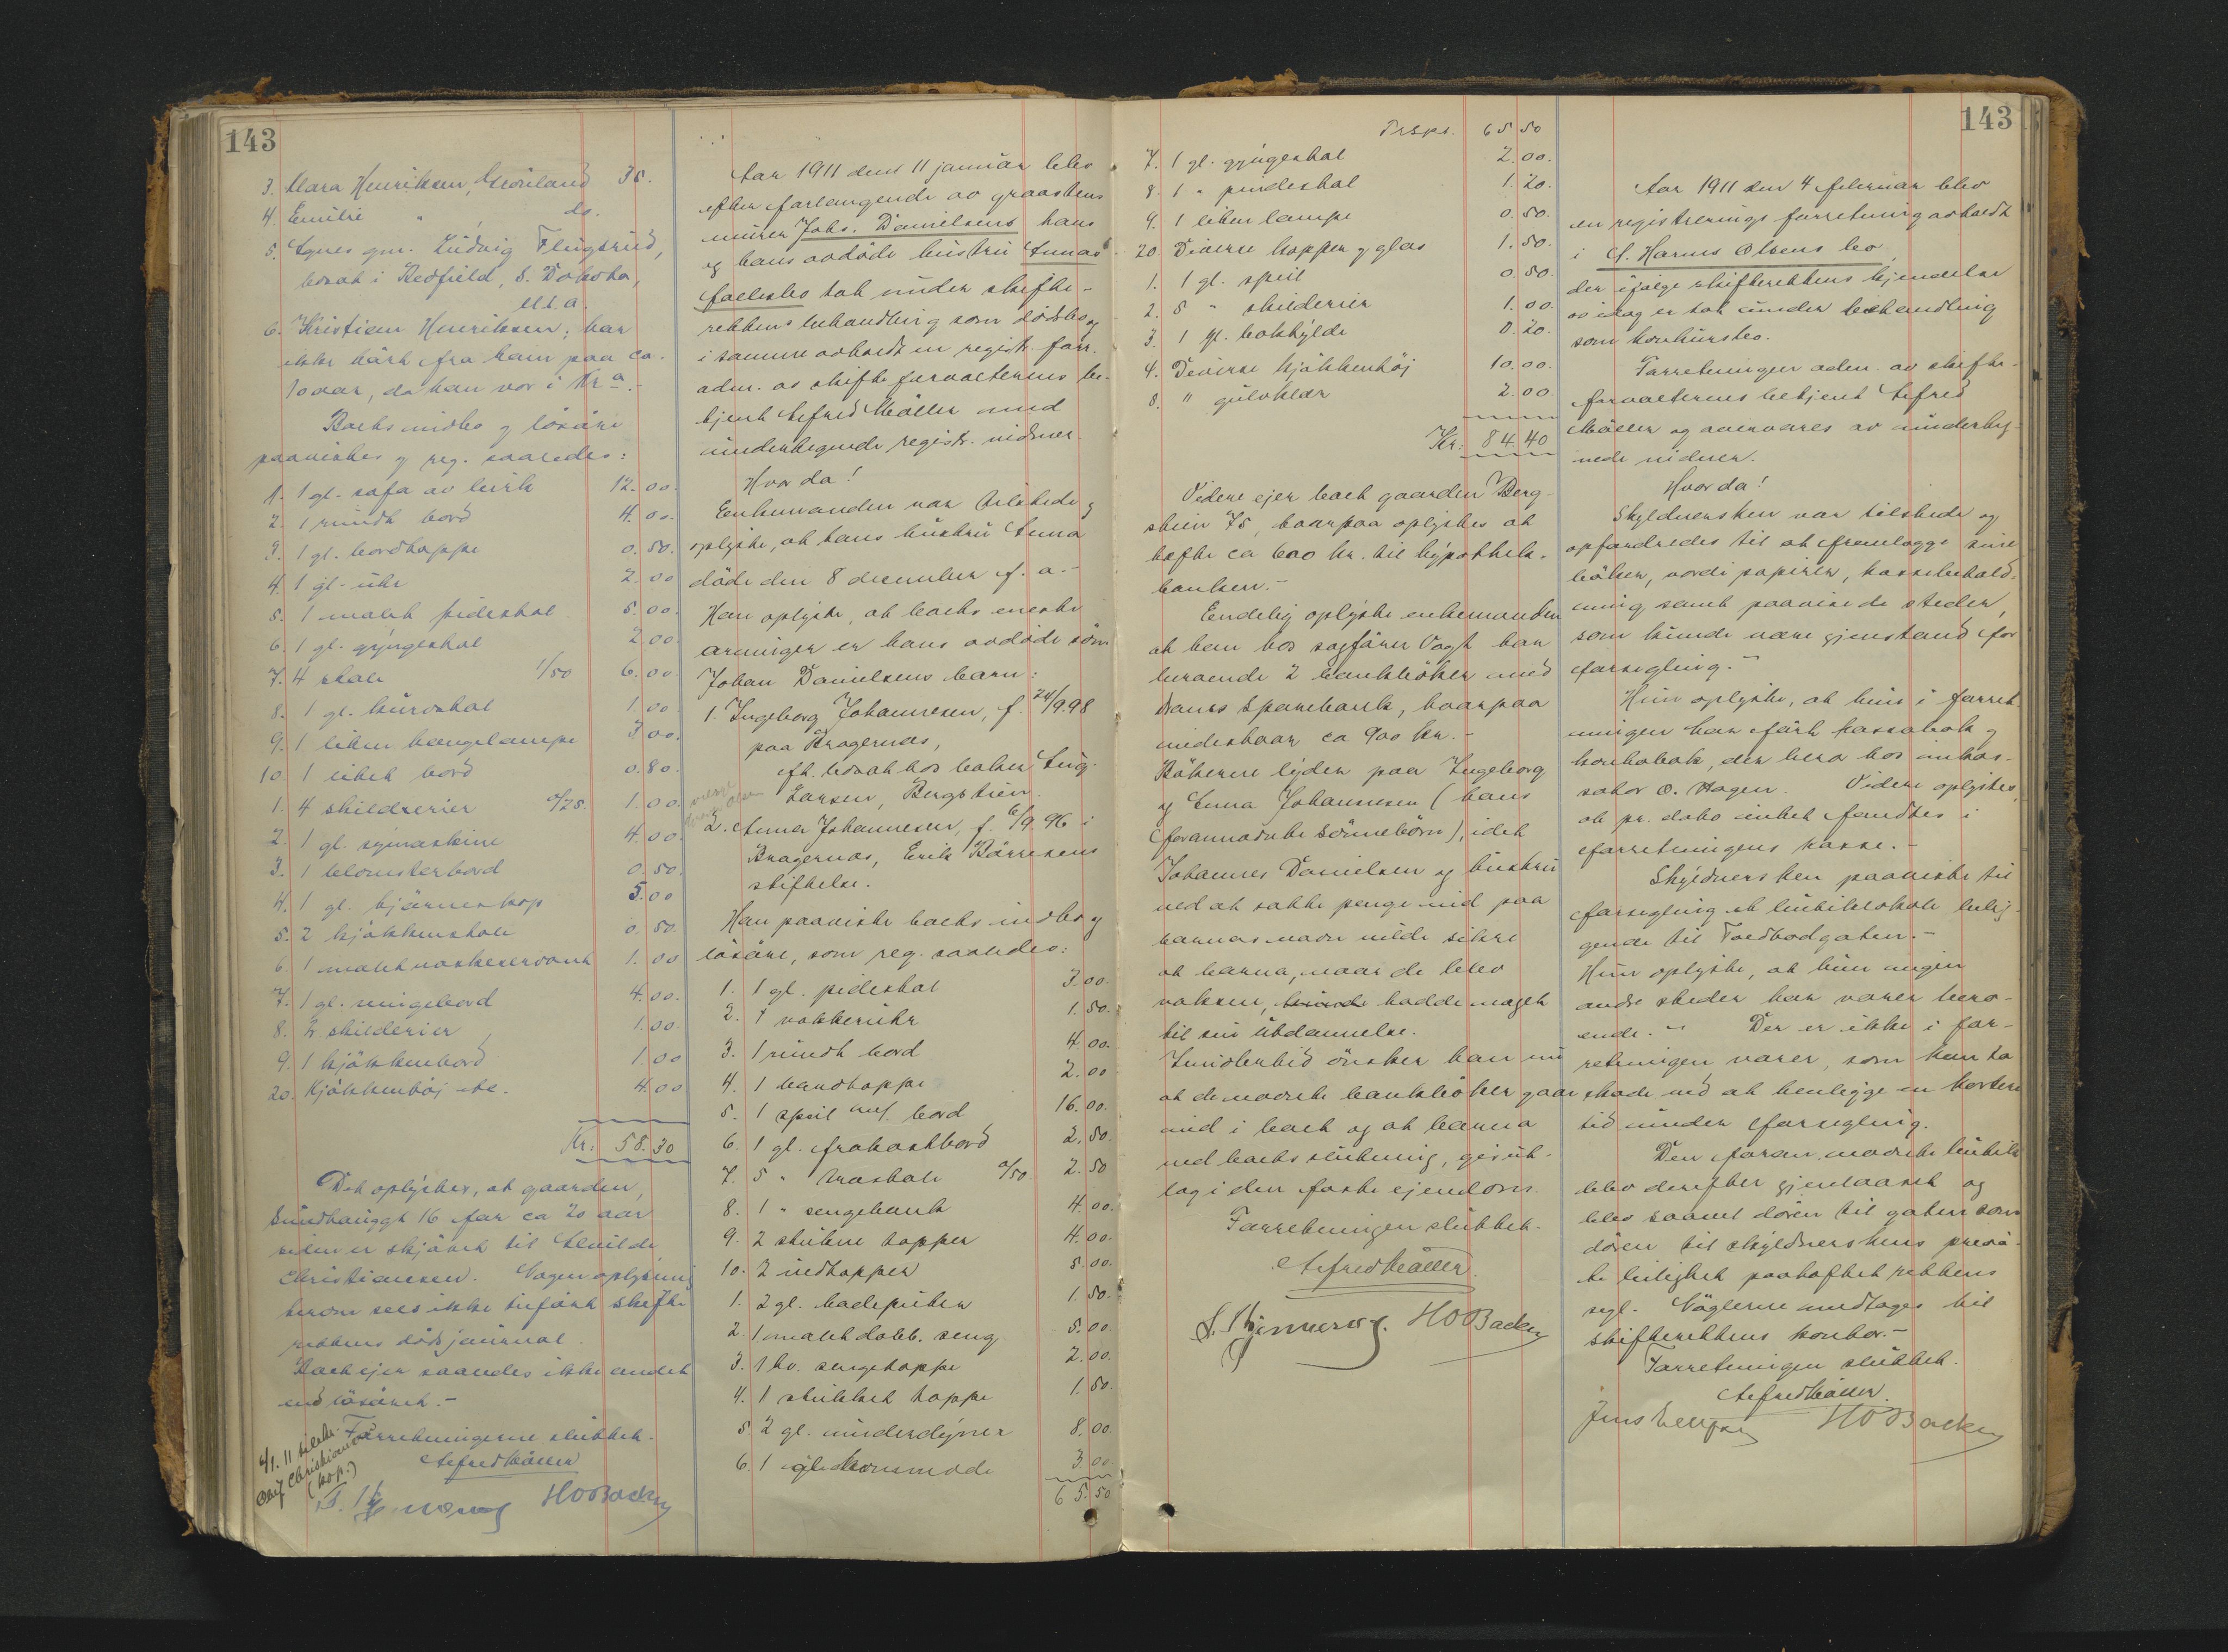 143
3. Clara Henriksen, Grönland 35.
4. Emilie " , do.
5. Agnes gm. Ludvig Flugsrud,
bosat i Redfield, S. Dakota,
U.s.a.
6. Kristian Henriksen; har
ikke hört fra ham paa ca.
10 aar, da han var i Kr.a.
Boets indbo og lösöre
paavistes og reg. saaledes:
1. 1 gl. sofa av birk 12.00
2. 1 rundt bord 4.00
3. 1 gl. bordteppe 0.50.
4. 1 gl. uhr 2.00
5. 1 malet pidestal 5.00.
6. 1 gl. gyngestol 2.00
7. 4 stole 1/50 6.00
8. 1 gl. kurvstol 1.00
9. 1 liten hengelampe 3.00.
10. 1 litet bord 0.80.
1. 4 skilderier a/25. 1.00.
2. 1 gl. symaskine 4.00.
3. 1 blomsterbord 0.50.
4. 1 gl. hjörneskap 5.00
5. 2 kjökkenstole 0.50.
6. 1 malet vaskeservant 1.00
7. 1 gl. vingebord 4.00.
8. 2 skilderier 1.00
9. 1 kjökkenbord 1.00
20. Kjökkentöj etc. 4.00
Kr. 58.30
Det oplystes, at gaarden,
Sundhauggt 16 for ca 20 aar
siden er skjötet til
Christiansen. Nogen oplysning
herom sees ikke tilfört skifte
rettens dödsjournal.
Boet ejer saaledes ikke andet
end lösöret.-
Forretningerne sluttet.
Alfred Möller
HOBacken
6/1. 11 tilstr.
Oluf Christiansen
(kop.)
Aar 1911 den 11 januar blev
efter forlangende av graastens
murer Johs. Danielsens hans
og hans avdöde hustru Annas
fællesbo tat under skifte-
rettens behandling som dödsbo og
i samme avholdt en registr. forr.
adm. av skifteforvalterens be-
tjent Alfred Möller med
undertegnede registr. vidner.
Hvorda!
Enkemanden var tilstede og
oplyste, at hans hustru Anna
döde den 8 december f. a.-
Han oplyste, at boets eneste
arvinger er hans avdöde sön
Johan Danielsens barn:
1. Ingeborg Johannesen, f. 24/9.98
paa Bragernes,
bosat hos baker Aug.
Larsen, Bergstien.
2. Anna Johannesen, f. 6/9 96 i
Bragernes, Erik Börresens
stiftelse.
Han paaviste boets indbo og
lösöre, som reg. saaledes:
1. 1 gl. pidestal 3.00.
2. 1 vækkeruhr 1.50.
3. 1 rundt bord 4.00.
4. 1 bordteppe 2.00
5. 1 speil m/ bord 16.00.
6. 1 gl. frokostbord 2.50.
7. 5 " træstole a/50. 2.50
8. 1 " sengebænk 4.00.
9. 2 stukne tepper 4.00.
10. 2 uldtepper 5.00.
1. 2 gl. hodeputer 1.50.
2. 1 malet dobb. seng 5.00.
3. 1 hv. sengeteppe 2.00.
4. 1 stukket teppe 1.50.
5. 2 gl. underdyner 8.00.
6. 1 gl. komode 3.00.
65.50
143
Trspt. 65 50
7. 1 gl. gyngestol 2.00.
8. 1 " pindestol 1.20.
9. 1 liten lampe 0.50.
20 Diverse kopper og glas 1.50.
1. 1 gl. speil 0.50.
2. 5 " skilderier 1.00.
3. 1 gl. bokhylde 0.20.
4. Diverse kjökkentöj 10.00.
5. " gulvklær 2.00
Kr. 84.40
Videre ejer boet gaarden Berg-
stien 75, hvorpaa oplystes at
hefte ca 600 kr. til hypothek-
banken.-
Endelig oplyste enkemanden
at han hos sagförer Vogt har
beroende 2 bankböker med
Drams Sparebank, hvorpaa
indestaar ca 900 kr.-
Bökerne lyder paa Ingeborg
og Anna Johannesen (hans
forannævnte sönnebörn), idet
Johannes Danielsen og hustru
ved at sætte penge ind paa
barnas navn vilde sikre
at barna, naar de blev
voksen, kunde hadde noget
til sin utdannelse.
Imidlertid önsker han nu
at de nævnte bankböker gaar
ind i boet og at barna
ved boets slutning, gis ut-
læg i den faste ejendom.
Forretningen sluttet.
Alfred Möller.
HOBacken
Aar 1911 den 4 februar blev
en registrerings forretning avholdt
i A. Harms Olsens bo,
der ifölge skifterettens kjendelse
av idag er tat under behandling
som konkursbo.
Forretningen adm. av skifte-
forvalterens betjent Alfred
Möller og overvares av underteg-
nede vidner.
Hvorda!
Skyldnersken var tilstede og
opfordredes til at fremlægge sine
böker, værdipapirer, kassebehold-
ning samt paavise de steder,
som kunde være gjenstand for
forsegling.-
Hun oplyste, at hun i forret-
ningen har fört kassabok og
kontobok, der bero hos inkas-
sator O. Hagen. Videre oplystes,
at pr. dato intet fandtes i
forretningens kasse.-
Skyldnersken paaviste til
forsegling et butiklokale belig-
gende til Toldbodgaten.-
Hun oplyste, at hun ingen
andre steder har varer bero-
ende.- Der er ikke i for-
retningen varer, som kan ta
skade ved at henligge en kortere
tid under forsegling.
Den foran nævnte butik
blev derefter gjenlaaset og
blev saavel dören til gaten som
dören til skyldnerskens priva-
te leilighet paaheftet rettens
segl. Nöglerne medtages til
skifterettens kontor.-
Forretningen sluttet.
Alfred Möller.
HOBacken